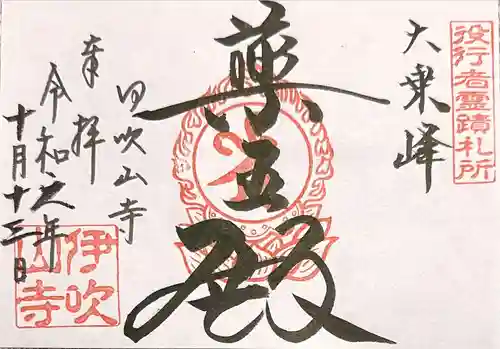 役行者靈蹟札所
大乗峰
薬王殿
伊吹山寺
奉拝
令和元年
十月十三日
伊吹
山寺